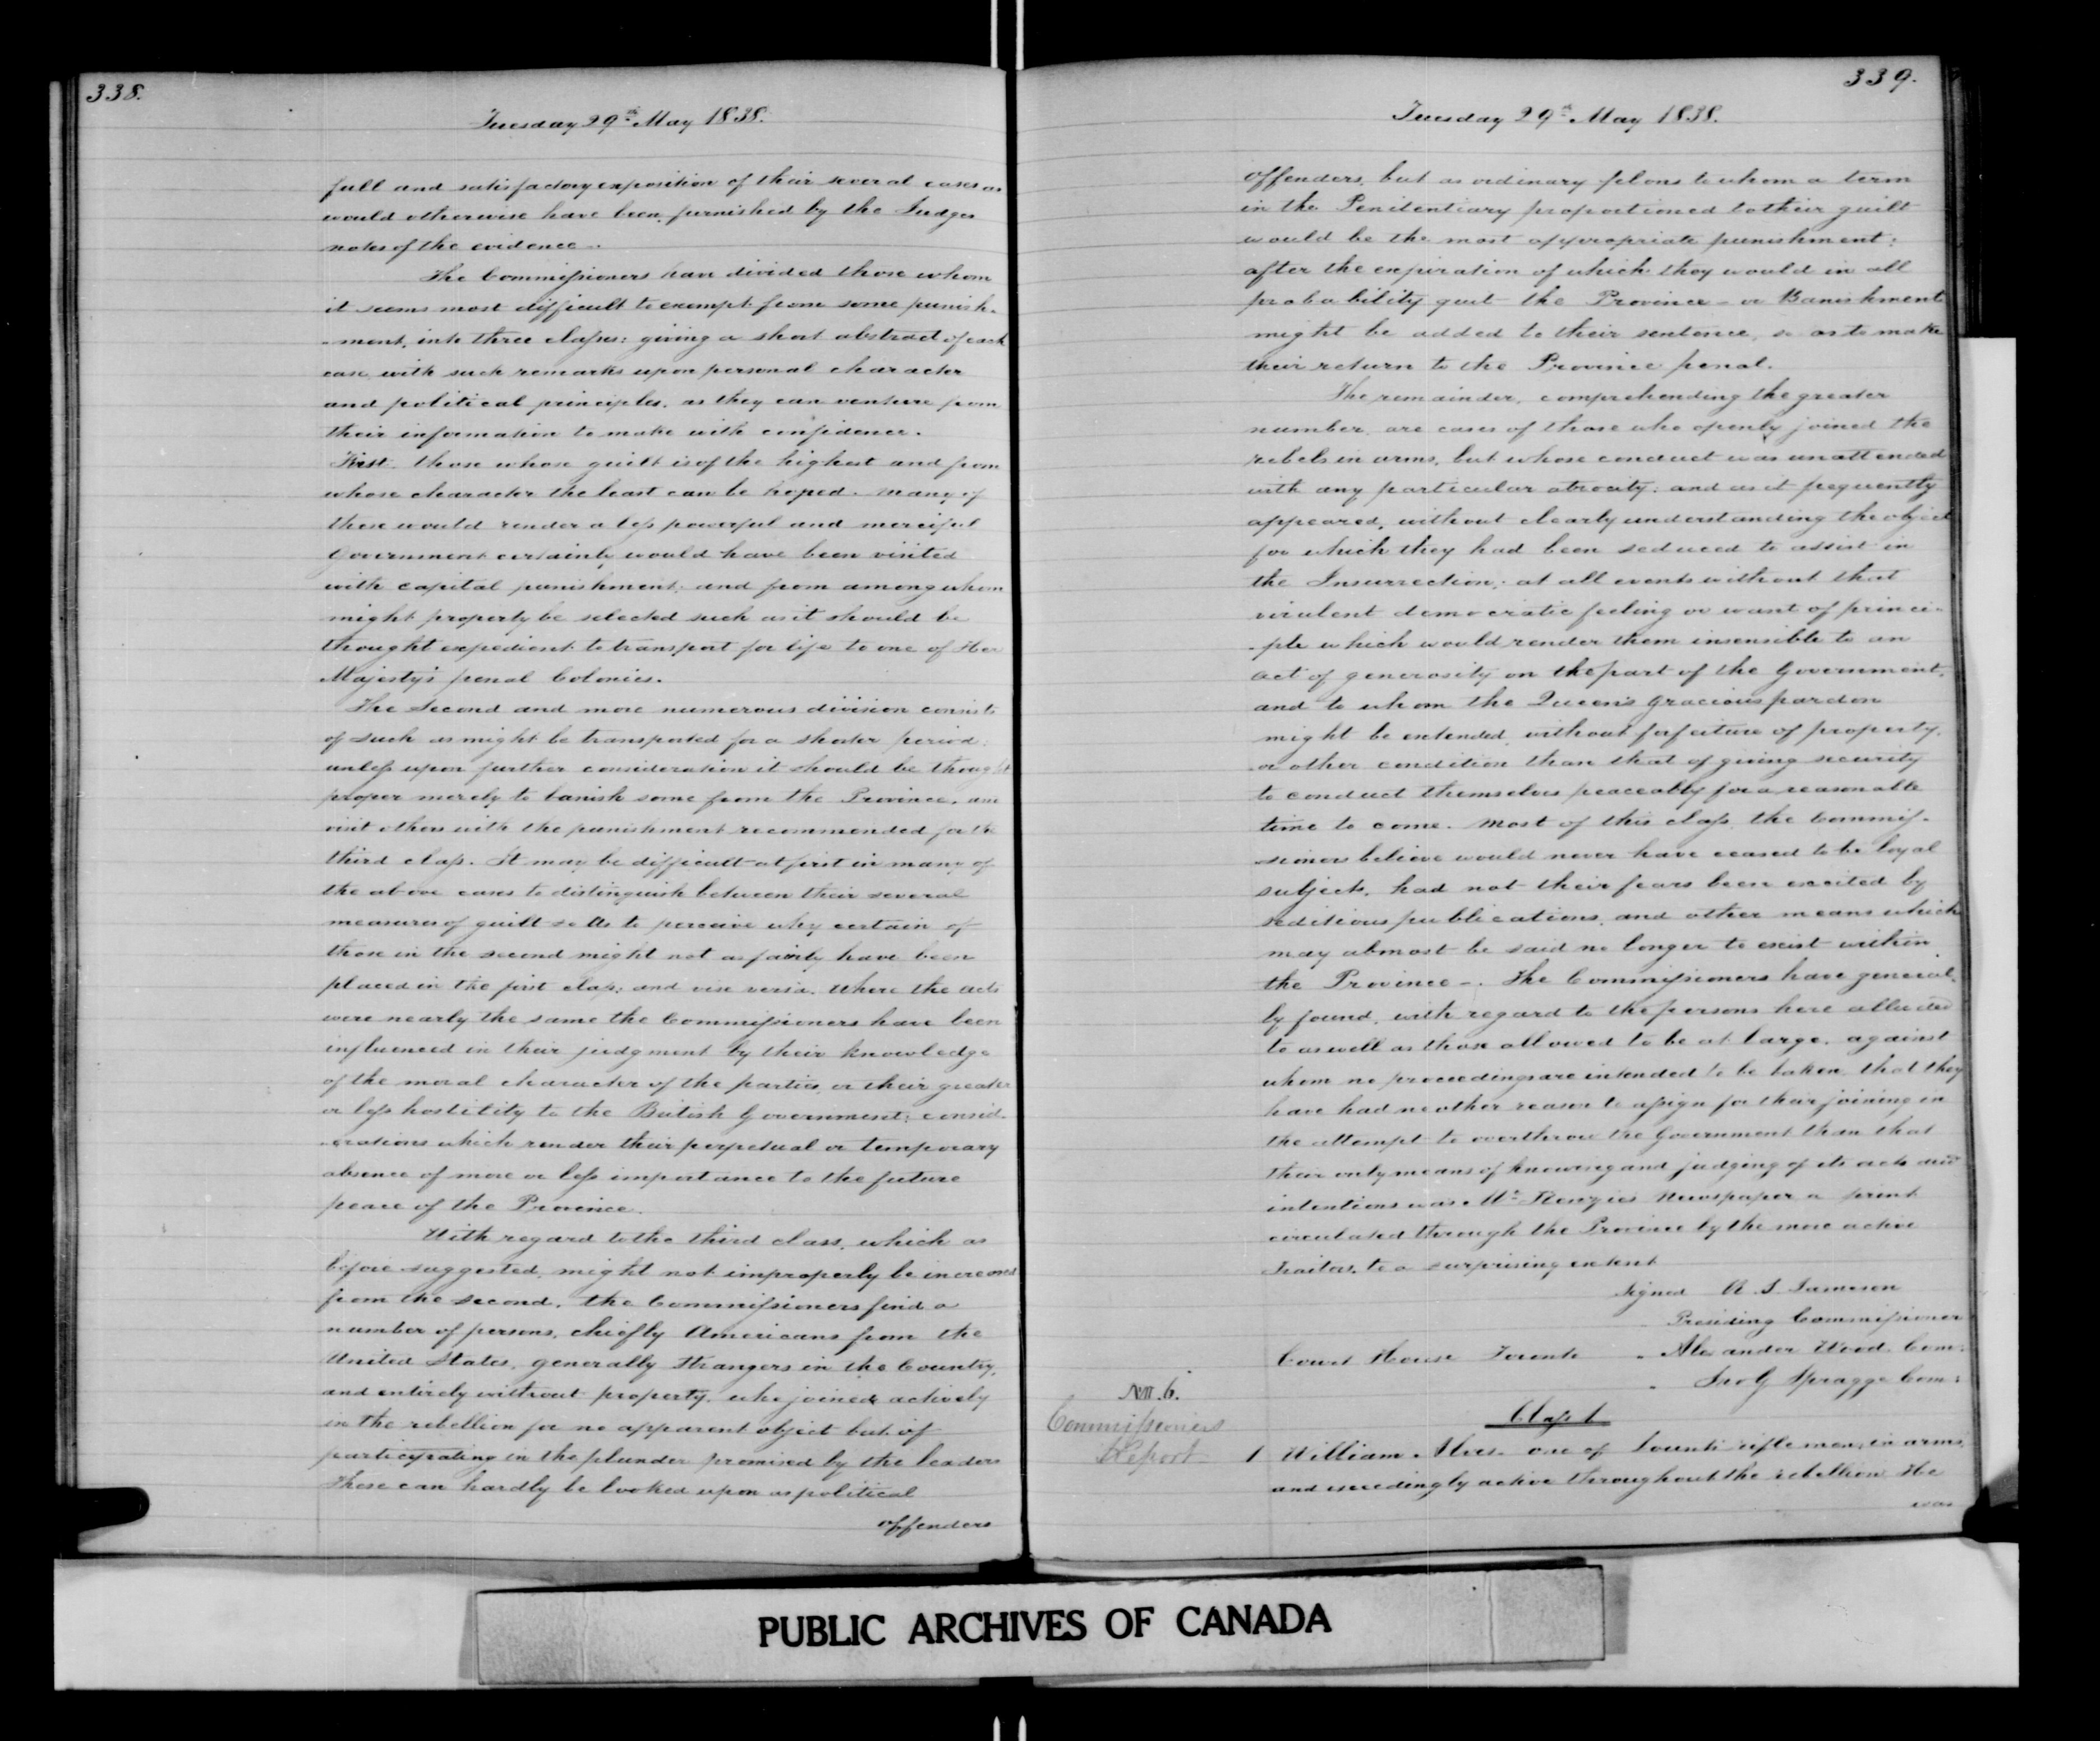 338.
Tuesday 29th May 1838.
full and satisfactory exposition of their several cases as
would otherwise have been furnished by the Judges
notes of the evidence.
The Commissioners have divided those whom
it seems most difficult to exempt from some punish-
-ment, into three classes: giving a short abstract of each
case with such remarks upon personal character
and political principles, as they can venture from
their information to make with confidence.
First. those whose guilt is of the highest and from
whose character the least can be hoped. Many of
these would render a less powerful and merciful
Government certainly would have been visited
with capital punishment: and from among whom
might properly be selected such as it should be
thought expedient to transport for life to one of Her
Majesty's penal Colonies.
The Second and more numerous division consists
of such as might be transported for a shorter period:
unless upon further consideration it should be thought
proper merely to banish some from the Province, and
visit others with the punishment recommended for the
third class. It may be difficult at first in many of
the above cases to distinguish between their several
measures of guilt so as to perceive why certain of
those in the second might not as fairly have been
placed in the first class; and vise versa. Where the acts
were nearly the same the Commissioners have been
influenced in their judgment by their knowledge
of the moral character of the parties, or their greater
or less hostility to the British Government; consid-
-erations which render their perpetual or temporary
absence of more or less importance to the future
peace of the Province.
With regard to the third class, which as
before suggested, might not improperly be increased
from the second, the Commissioners find a
number of persons, chiefly Americans from the
United States, generally strangers in the Country,
and entirely without property, who joined actively
in the rebellion for no apparent object but of
participating in the plunder promised by the leaders
These can hardly be looked upon as political
offenders
339.
Tuesday 29th May 1838.
offenders, but as ordinary felons to whom a term
in the Penitentiary proportioned to their guilt
would be the most appropriate punishment:
after the expiration of which they would in all
probability quit the Province - or Banishment
might be added to their sentence, so as to make
their return to the Province penal.
The remainder, comprehending the greater
number, are cases of those who openly joined the
rebels in arms, but whose conduct was unattended
with any particular atrocity; and as it frequently
appeared, without clearly understanding the object
for which they had been seduced to assist in
the Insurrection; at all events without that
virulent democratic feeling or want of princi-
-ple which would render them insensible to an
act of generosity on the part of the Government,
and to whom the Queen's gracious pardon
might be extended, without forfeiture of property,
or other condition than that of giving security
to conduct themselves peaceably for a reasonable
time to come. Most of this class, the Commis-
sioners believe would never have ceased to be loyal
subjects, had not their fears been excited by
seditious publications, and other means which
may almost be said no longer to exist within
the Province -. The Commissioners have general-
ly found, with regard to the persons here alluded
to as well as those allowed to be at large, against
whom no proceedings are intended to be taken, that they
have had no other reason to assign for their joining in
the attempt to overthrow the Government than that
their only means of knowing and judging of its acts and
intentions was Mc Kenzie's Newspaper a print
circulated through the Province by the more active
Traitors, to a surprising extent
Signed R. S. Jameson
Presiding Commissioner
Court House Toronto " Alexander Wood Com:
" Jno G Spragge Com:
No. 6.
Commissioners
Report
Class 1
1 William Alves - one of Lount's riflemen, in arms,
and exceedingly active throughout the rebellion He
was
PUBLIC ARCHIVES OF CANADA